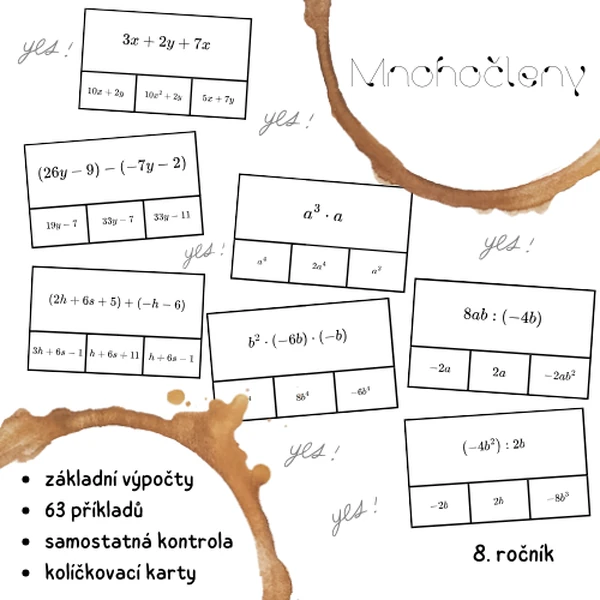 yes!
3x + 2y + 7x
10x + 2y
10x² + 2y
5x + 7y
Mnohočleny
yes!
(26y − 9) − (−7y − 2)
19y − 7
33y − 7
33y − 11
a³ · a
a⁴
2a⁴
a²
yes!
yes!
(2h + 6s + 5) + (−h − 6)
3h + 6s − 1
h + 6s + 11
h + 6s − 1
b² · (−6b) · (−b)
⁴
8b⁴
−6b⁴
8ab : (−4b)
−2a
2a
−2ab²
(−4b²) : 2b
−2b
2b
−8b³
yes!
yes!
• základní výpočty
• 63 příkladů
• samostatná kontrola
• kolíčkovací karty
8. ročník